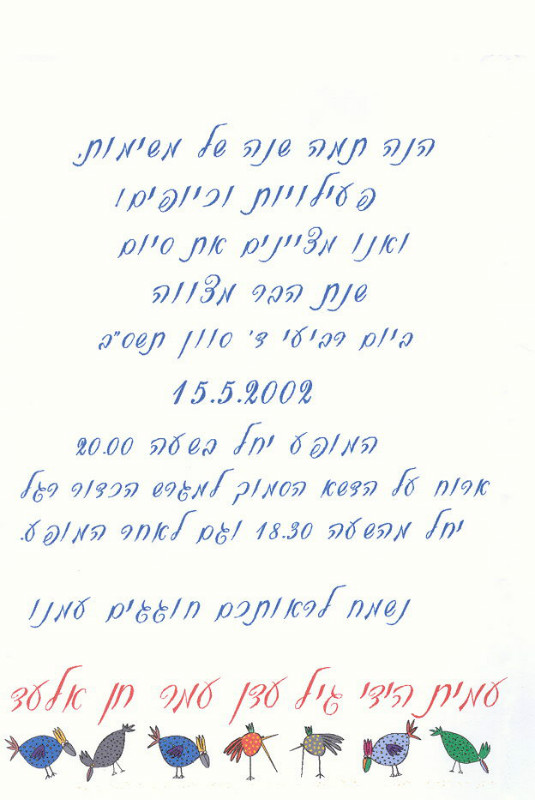 הנה תמה שנה של משימות,
פעילויות וכיופים!
ואנו מציינים את סיום
שנת הבר מצווה
ביום רביעי ד' סוון תשס"ב
15.5.2002
המופע יחל בשעה 20.00
ארוח על הדשא הסמוך למגרש הכדור רגל
יחל מהשעה 18.30 וגם לאחר המופע.
נשמח לראותכם חוגגים עמנו
עמית הידי גיל עדן עמר חן אלעד